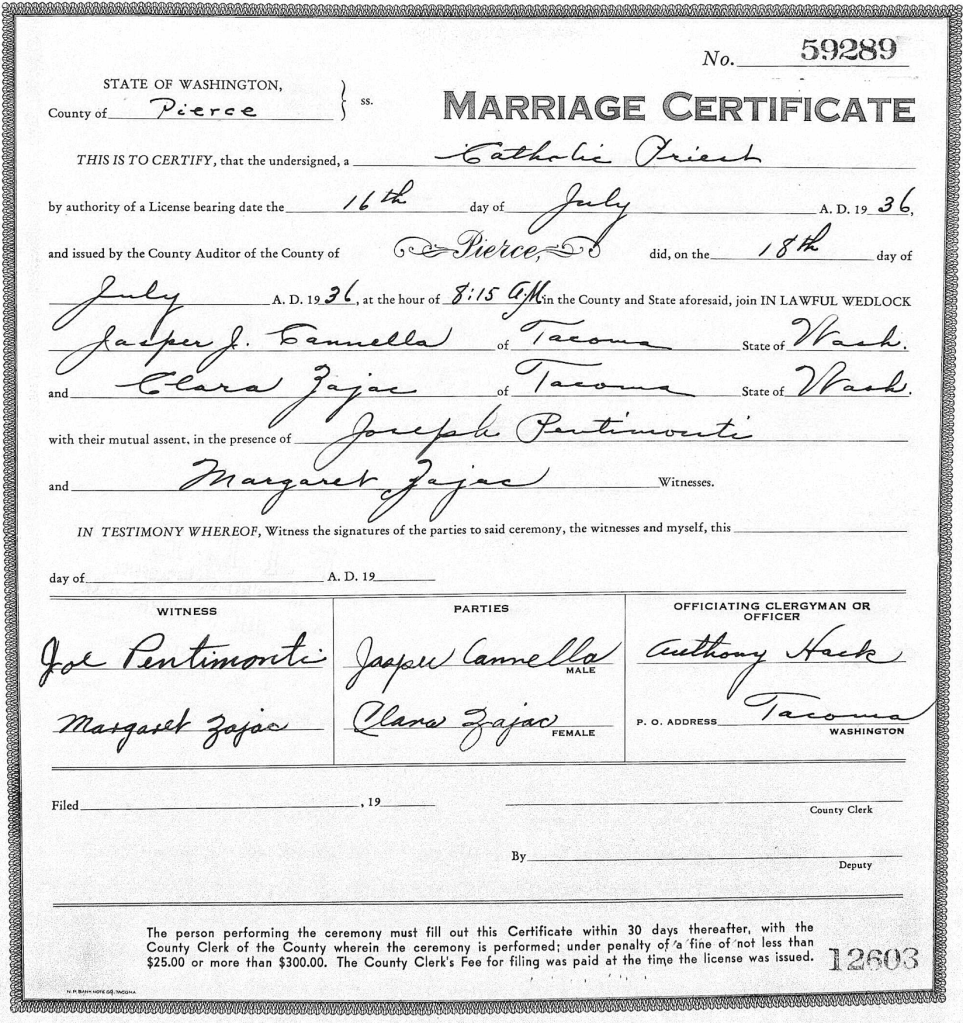 No. 59289
STATE OF WASHINGTON,
County of Pierce } ss.
MARRIAGE CERTIFICATE
THIS IS TO CERTIFY, that the undersigned, a Catholic Priest
by authority of a License bearing date the 16th day of July A. D. 19 36,
and issued by the County Auditor of the County of Pierce, did, on the 18th day of
July A. D. 19 36, at the hour of 8:15 A.M. in the County and State aforesaid, join IN LAWFUL WEDLOCK
Jasper J. Cannella of Tacoma State of Wash.
and Clara Zajac of Tacoma State of Wash.
with their mutual assent, in the presence of Joseph Pentimonti
and Margaret Zajac Witnesses.
IN TESTIMONY WHEREOF, Witness the signatures of the parties to said ceremony, the witnesses and myself, this
day of A. D. 19
WITNESS PARTIES OFFICIATING CLERGYMAN OR OFFICER
Joe Pentimonti Jasper Cannella MALE Anthony Hack
Margaret Zajac Clara Zajac FEMALE P. O. ADDRESS Tacoma WASHINGTON
Filed , 19 County Clerk
By Deputy
The person performing the ceremony must fill out this Certificate within 30 days thereafter, with the
County Clerk of the County wherein the ceremony is performed; under penalty of a fine of not less than
$25.00 or more than $300.00. The County Clerk's Fee for filing was paid at the time the license was issued.
12603
N. P. BANK NOTE CO. TACOMA